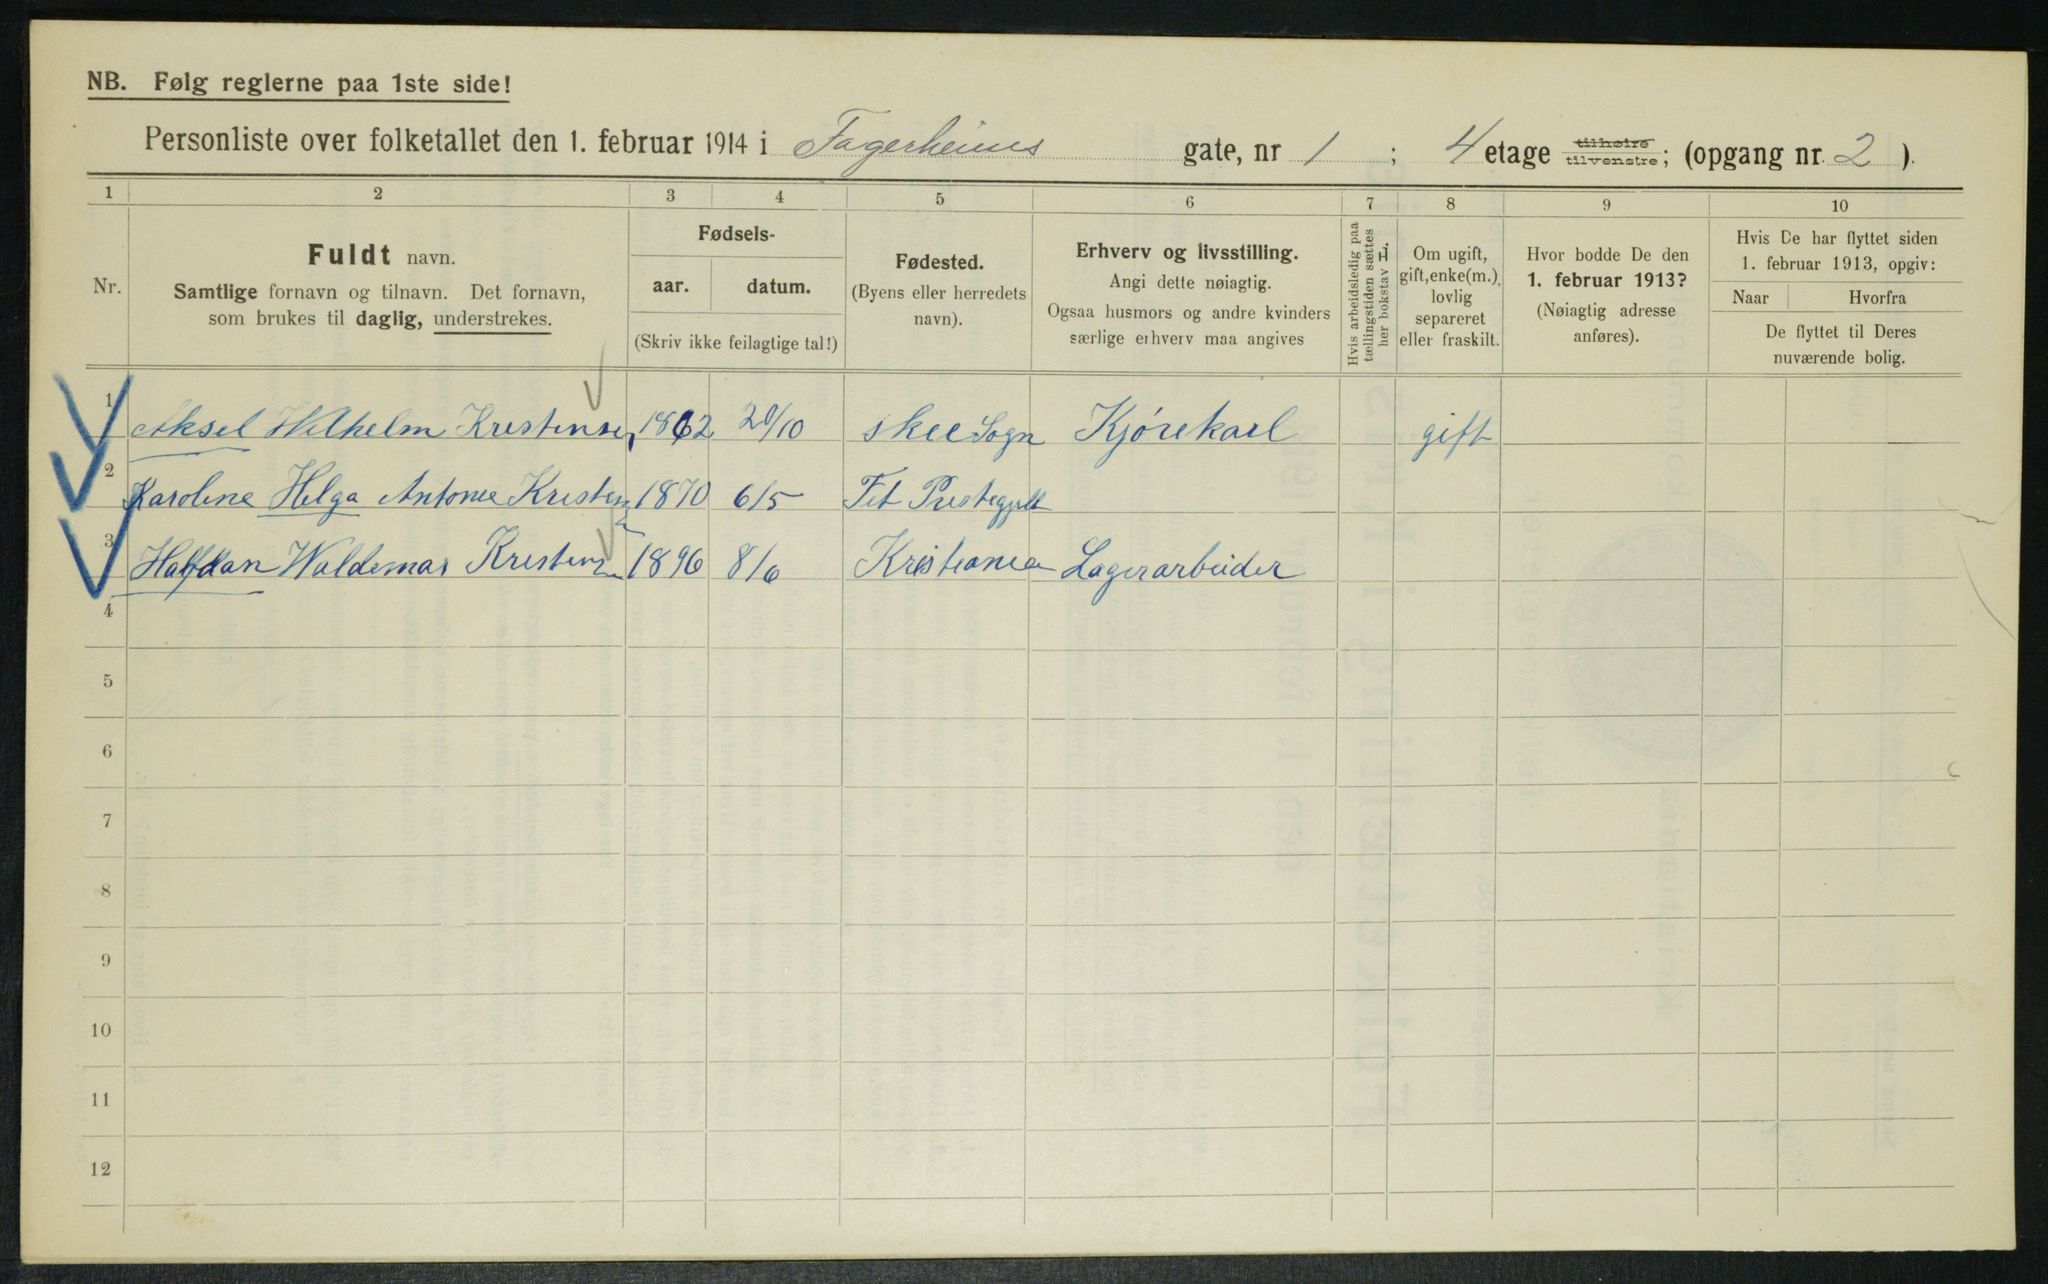 NB. Følg reglerne paa 1ste side!
Personliste over folketallet den 1. februar 1914 i Fagerheims gate, nr 1 ; 4 etage tilhøire tilvenstre; (opgang nr. 2 ).
1 2 3 4 5 6 7 8 9 10
Nr.
Fuldt navn.
Samtlige fornavn og tilnavn. Det fornavn,
som brukes til daglig, understrekes.
Fødsels-
aar. datum.
(Skriv ikke feilagtige tal!)
Fødested.
(Byens eller herredets
navn).
Erhverv og livsstilling.
Angi dette nøiagtig.
Ogsaa husmors og andre kvinders
særlige erhverv maa angives
Hvis arbeidsledig paa
tællingstiden sættes
her bokstav L.
Om ugift,
gift, enke(m.),
lovlig
separeret
eller fraskilt.
Hvor bodde De den
1. februar 1913?
(Nøiagtig adresse
anføres).
Hvis De har flyttet siden
1. februar 1913, opgiv:
Naar Hvorfra
De flyttet til Deres
nuværende bolig.
1 Aksel Wilhelm Kristensen 1862 20/10 Skee Sogn Kjørekarl gift
2 Karoline Helga Antonie Kristensen 1870 6/5 Fet Prestegjeld
3 Halfdan Waldemar Kristensen 1896 8/6 Kristiania Lagerarbeider
4
5
6
7
8
9
10
11
12